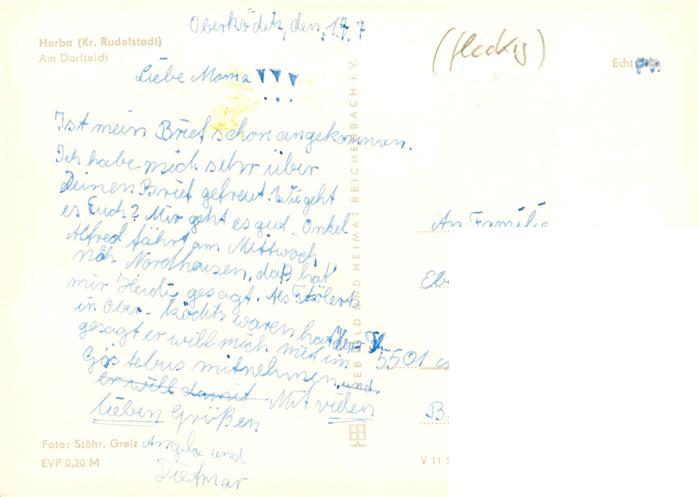 Oberköditz, den, 17. 7
Horba (Kr. Rudolstadt)
Am Dorfteich
(fleckig)
Echt Foto
Liebe Mama!!!
Ist mein Brief schon angekommen.
Ich habe mich sehr über
Deinen Brief gefreut. Wie geht
es Euch? Mir geht es gut. Onkel
Alfred fährt am Mittwoch
nach Nordhausen, daß hat
mir Heidi gesagt. Als
in Ober-köditz waren hat
gesagt er will mich mit im
Gästebus mitnehmen, und
er will damit Mit vielen
lieben Grüßen
Angela und
Dietmar
An Familie
5501
B
VEB BILD UND HEIMAT REICHENBACH i. V.
Foto: Stöhr, Greiz
EVP 0,20 M
V 11 5